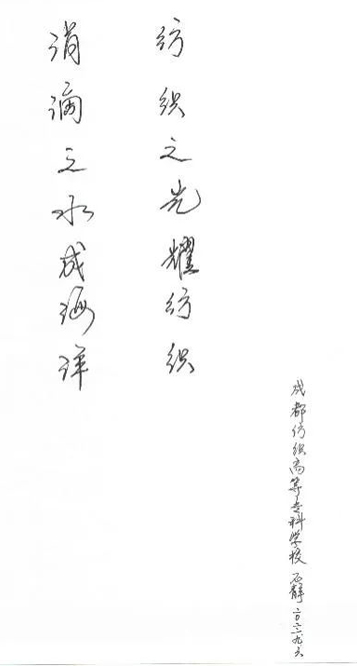 涓滴之水成海洋
纺织之光耀纺织
成都纺织高等专科学校 石静